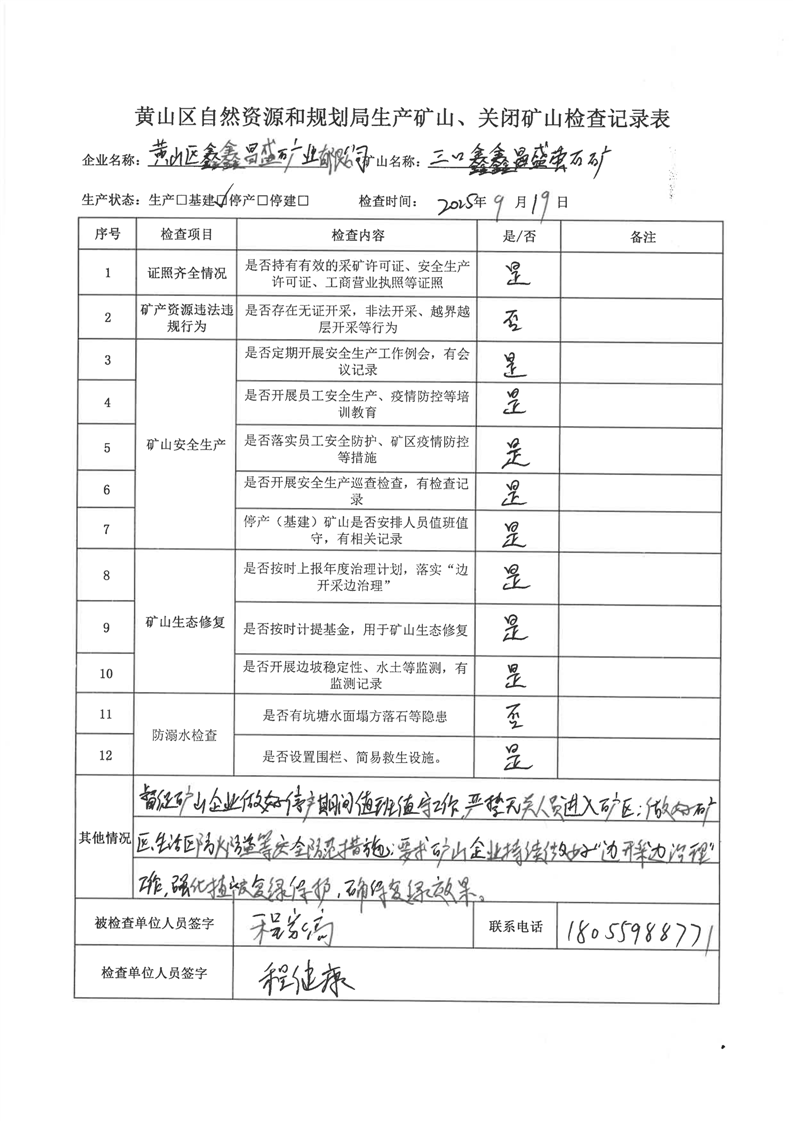 黄山区自然资源和规划局生产矿山、关闭矿山检查记录表
企业名称：黄山区鑫鑫昌盛矿业有限公司 矿山名称：三口鑫鑫昌盛萤石矿
生产状态：生产□基建□✓停产□停建□ 检查时间：2025年9月19日
序号 检查项目 检查内容 是/否 备注
1 证照齐全情况 是否持有有效的采矿许可证、安全生产
许可证、工商营业执照等证照 是
2 矿产资源违法违
规行为 是否存在无证开采，非法开采、越界越
层开采等行为 否
3 是否定期开展安全生产工作例会，有会
议记录 是
4 是否开展员工安全生产、疫情防控等培
训教育 是
矿山安全生产
5 是否落实员工安全防护、矿区疫情防控
等措施 是
6 是否开展安全生产巡查检查，有检查记
录 是
7 停产（基建）矿山是否安排人员值班值
守，有相关记录 是
8 是否按时上报年度治理计划，落实“边
开采边治理” 是
矿山生态修复
9 是否按时计提基金，用于矿山生态修复 是
10 是否开展边坡稳定性、水土等监测，有
监测记录 是
11 是否有坑塘水面塌方落石等隐患 否
防溺水检查
12 是否设置围栏、简易救生设施。 是
其他情况
督促矿山企业做好停产期间值班值守工作，严禁无关人员进入矿区；做好矿
区、生活区防火防盗等安全防范措施；要求矿山企业持续做好“边开采边治理”
工作，强化植被复绿保护，确保复绿效果。
被检查单位人员签字 程家高 联系电话 18055988771
检查单位人员签字 程健康